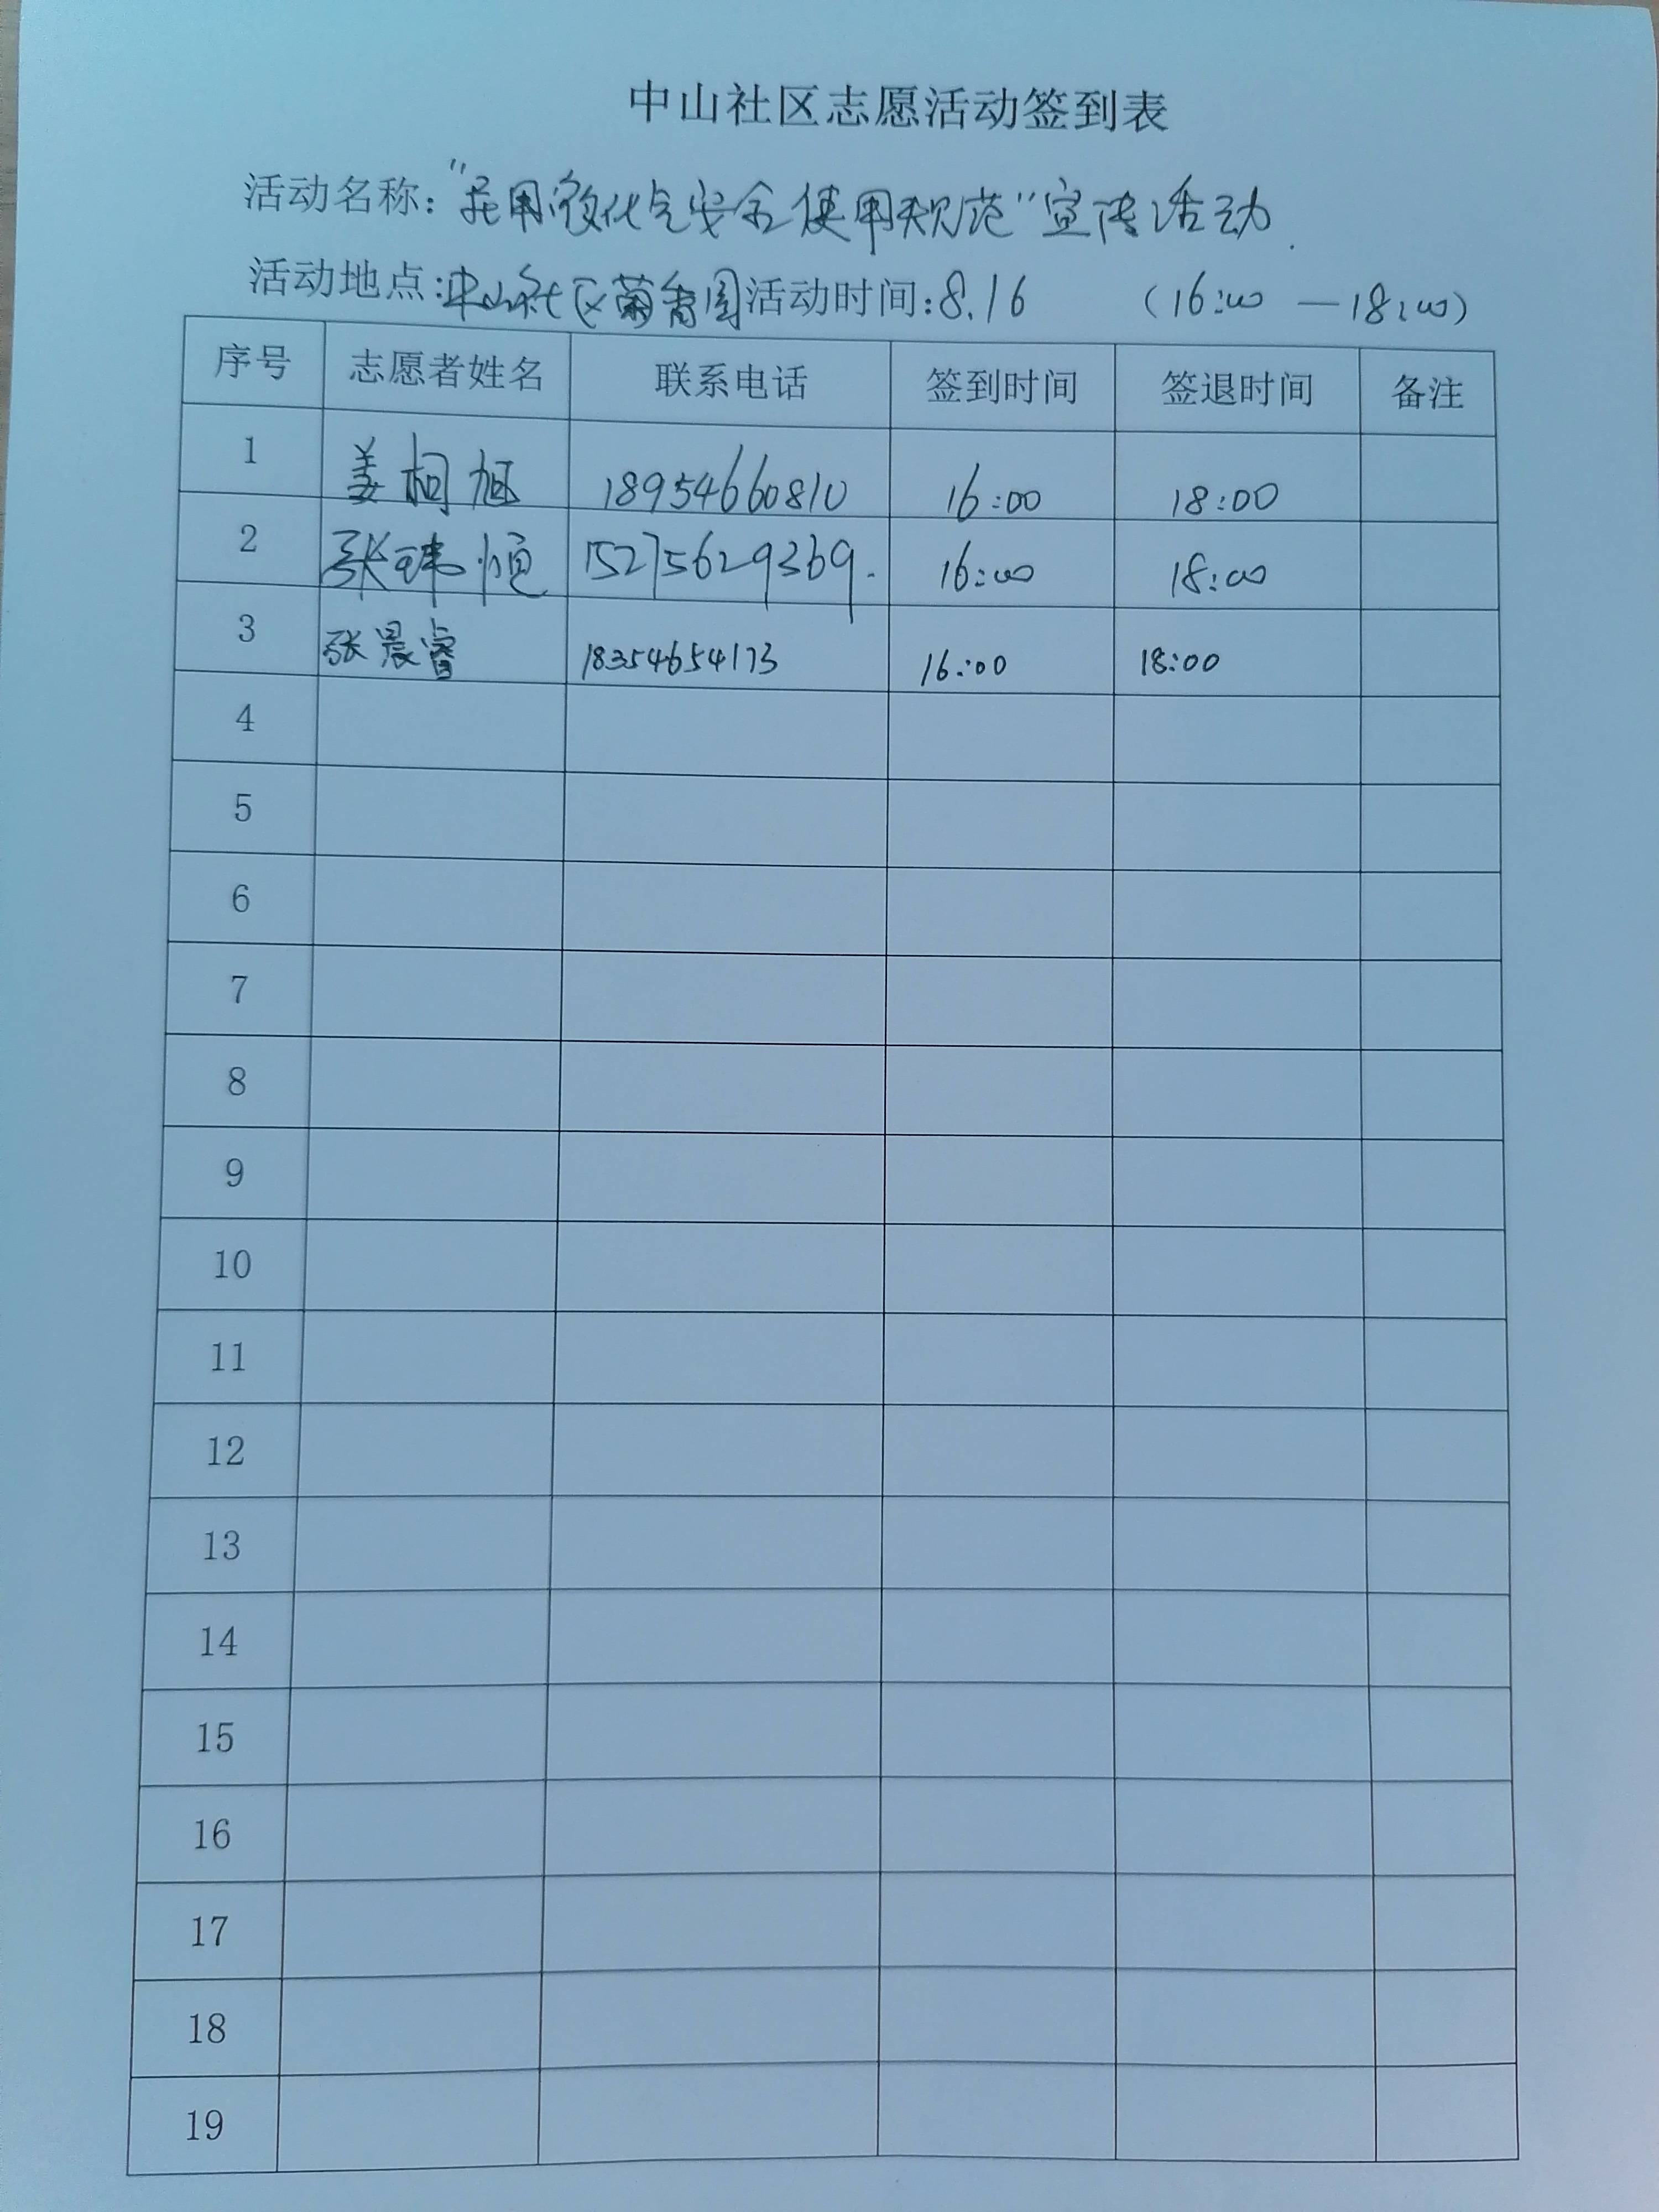 中山社区志愿活动签到表
活动名称："民用液化气安全使用规范"宣传活动.
活动地点:中山社区菊香园 活动时间:8.16 (16:00 — 18:00)
序号 志愿者姓名 联系电话 签到时间 签退时间 备注
1 姜桐旭 18954660810 16:00 18:00
2 张玮恒 15275629369. 16:00 18:00
3 张晨睿 18354654173 16:00 18:00
4
5
6
7
8
9
10
11
12
13
14
15
16
17
18
19